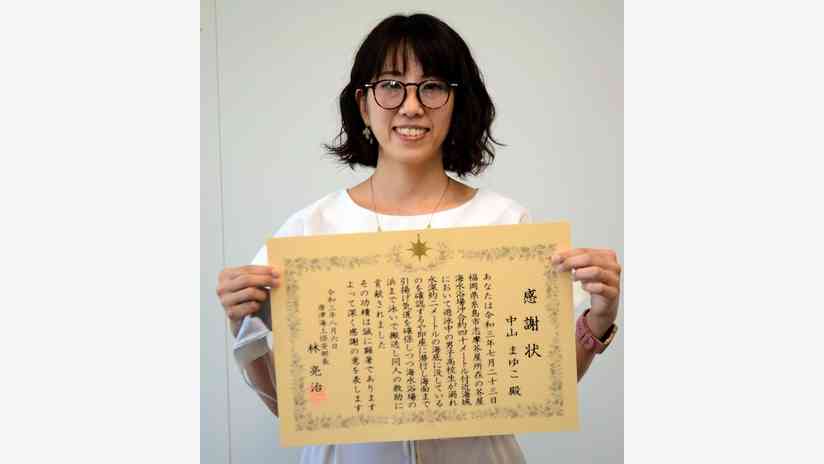 感謝状
中山まゆこ殿
あなたは令和三年七月二十三日
福岡県糸島市志摩芥屋所在の芥屋
海水浴場沖合約四十メートル付近海域
において遊泳中の男子高校生が溺れ
水深約二メートルの海底に没している
のを確認するや即座に潜行し海面まで
引揚げ気道を確保しつつ海水浴場の
浜まで泳いで搬送し同人の救助に
貢献されました
その功績は誠に顕著であります
よって深く感謝の意を表します
令和三年八月六日
唐津海上保安部長
林亮治